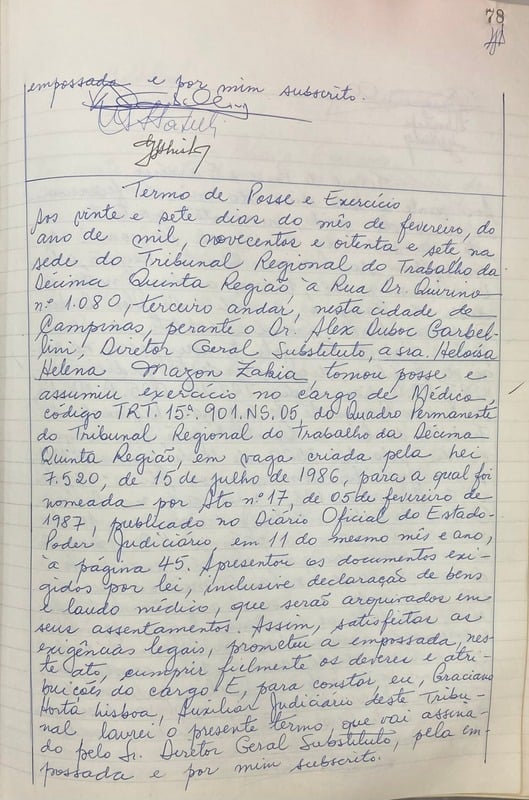 78
empossada e por mim subscrito.
Termo de Posse e Exercício
Aos vinte e sete dias do mês de fevereiro, do
ano de mil, novecentos e oitenta e sete na
sede do Tribunal Regional do Trabalho da
Décima Quinta Região, à Rua Dr. Quirino
nº 1.080, terceiro andar, nesta cidade de
Campinas, perante o Dr. Alex Duboc Garbel-
lini, Diretor Geral Substituto, a sra. Heloisa
Helena Mazon Zakia, tomou posse e
assumiu exercício no cargo de Médico,
código TRT. 15ª. 901.NS.05, do Quadro Permanente
do Tribunal Regional do Trabalho da Décima
Quinta Região, em vaga criada pela Lei
7.520, de 15 de julho de 1986, para a qual foi
nomeada por Ato nº 17, de 05 de fevereiro de
1987, publicado no Diário Oficial do Estado-
Poder Judiciário, em 11 do mesmo mês e ano,
à página 45. Apresentou os documentos exi-
gidos por lei, inclusive declaração de bens
e laudo médico, que serão arquivados em
seus assentamentos. Assim, satisfeitas as
exigências legais, prometeu a empossada, nes-
te ato, cumprir fielmente os deveres e atri-
buições do cargo. E, para constar eu, Graciano
Horta Lisboa, Auxiliar Judiciário deste Tribu-
nal lavrei o presente termo que vai assina-
do pelo Sr. Diretor Geral Substituto, pela em-
possada e por mim subscrito.